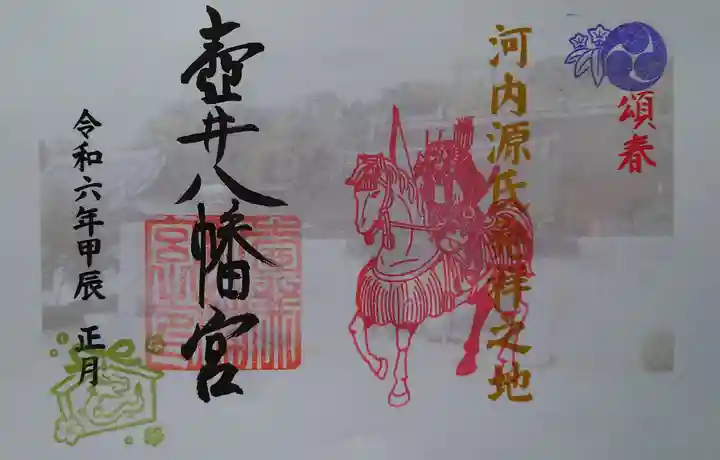 頌春
河内源氏発祥之地
壺井八幡宮
令和六年甲辰 正月